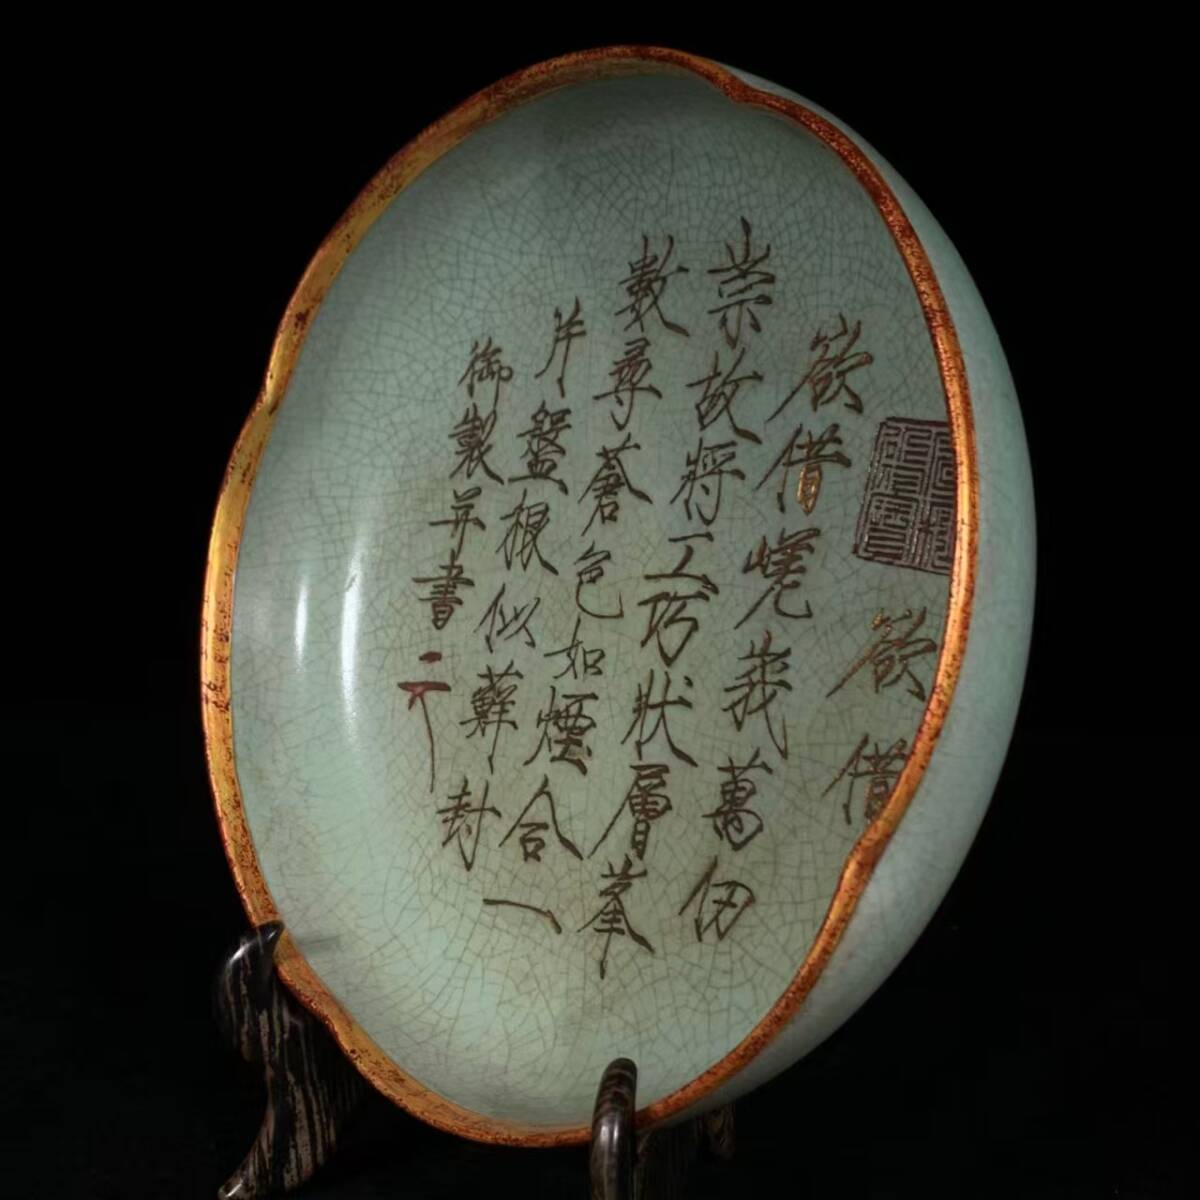 欲借
欲借嶢峩萬仞
崇故將工巧狀層峯
數尋蒼色如煙合一
片盤根似蘚封
御製并書